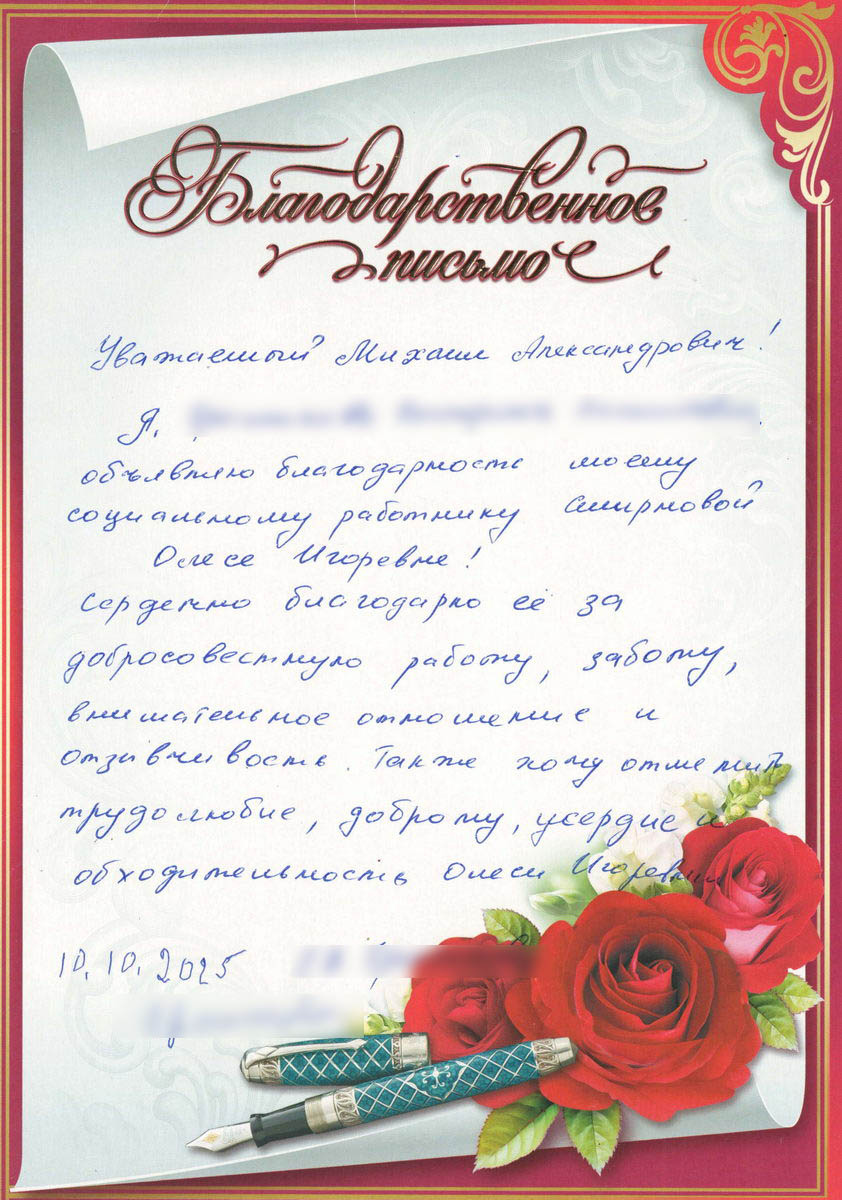 Благодарственное
письмо
Уважаемый Михаил Александрович!
Я,
объявляю благодарность моему
социальному работнику Смирновой
Олесе Игоревне!
Сердечно благодарю её за
добросовестную работу, заботу,
внимательное отношение и
отзывчивость. Также хочу отметить
трудолюбие, доброту, усердие и
обходительность Олеси Игоревны
10.10.2025